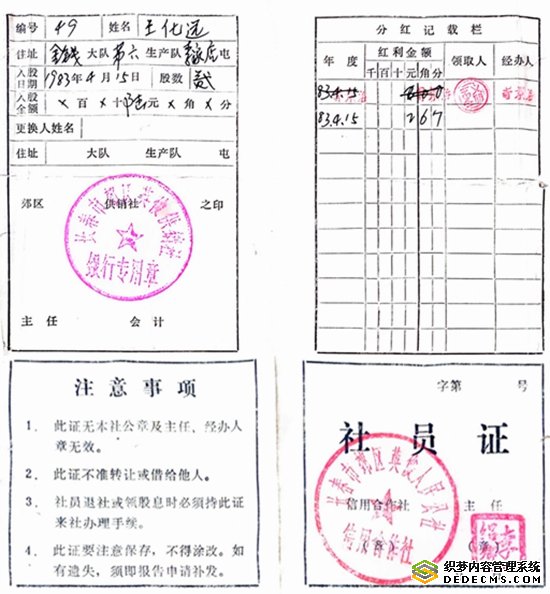 编号 49 姓名 王化远
住址 大队 第六 生产队 屯
入股日期 1983年4月15日 股数 贰
入股金额 ×百×十陆元×角×分
更换人姓名
住址 大队 生产队 屯
郊区 供销社 之印
长春市郊区英俊供销社
银行专用章
主任 会计
分红记载栏
年度 红利金额 领取人 经办人
千百十元角分
83.4.15
83.4.15 2 6 7
注意事项
1. 此证无本社公章及主任、经办人
章无效。
2. 此证不准转让或借给他人。
3. 社员退社或领股息时必须持此证
来社办理手续。
4. 此证要注意保存，不得涂改。如
有遗失，须即报告申请补发。
字第 号
社员证
长春市郊区英俊人民公社
信用合作社 主任
信用合作社
(章) (章)
织梦内容管理系统
DEDECMS.COM